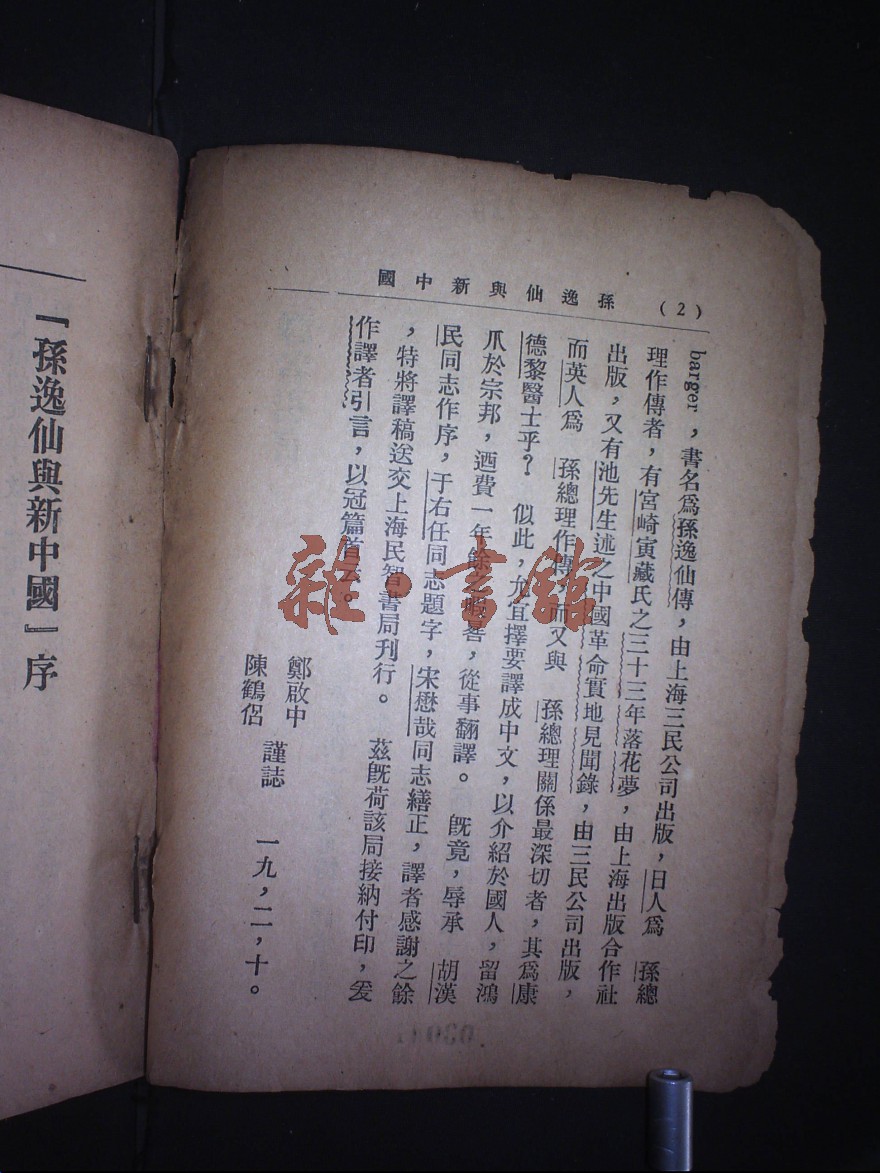 (2) 孫逸仙與新中國
barger，書名爲孫逸仙傳，由上海三民公司出版，日人爲　孫總
理作傳者，有宮崎寅藏氏之三十三年落花夢，由上海出版合作社
出版，又有池先生述之中國革命實地見聞錄，由三民公司出版，
而英人爲　孫總理作傳，而又與　孫總理關係最深切者，其爲康
德黎醫士乎？　似此，尤宜擇要譯成中文，以介紹於國人，留鴻
爪於宗邦，迺費一年餘之晷，從事翻譯。　旣竟，辱承　胡漢
民同志作序，于右任同志題字，宋懋哉同志繕正，譯者感謝之餘
，特將譯稿送交上海民智書局刊行。　茲旣荷該局接納付印，爰
作譯者引言，以冠篇首云。
鄭啟中
陳鶴侶
謹誌　一九，二，十。
『孫逸仙與新中國』序
雜·書館